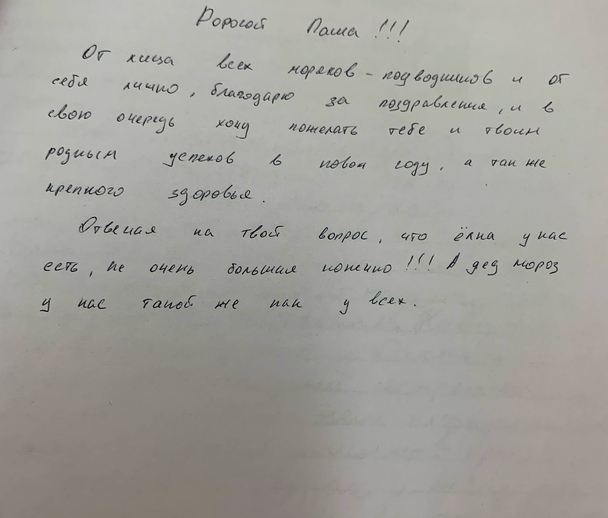 Дорогой Паша!!!
От лица всех моряков - подводников и от
себя лично, благодарю за поздравления, и в
свою очередь хочу пожелать тебе и твоим
родным успехов в новом году, а так же
крепкого здоровья.
Отвечая на твой вопрос, что ёлка у нас
есть, не очень большая конечно!!! А дед мороз
у нас такой же как у всех.